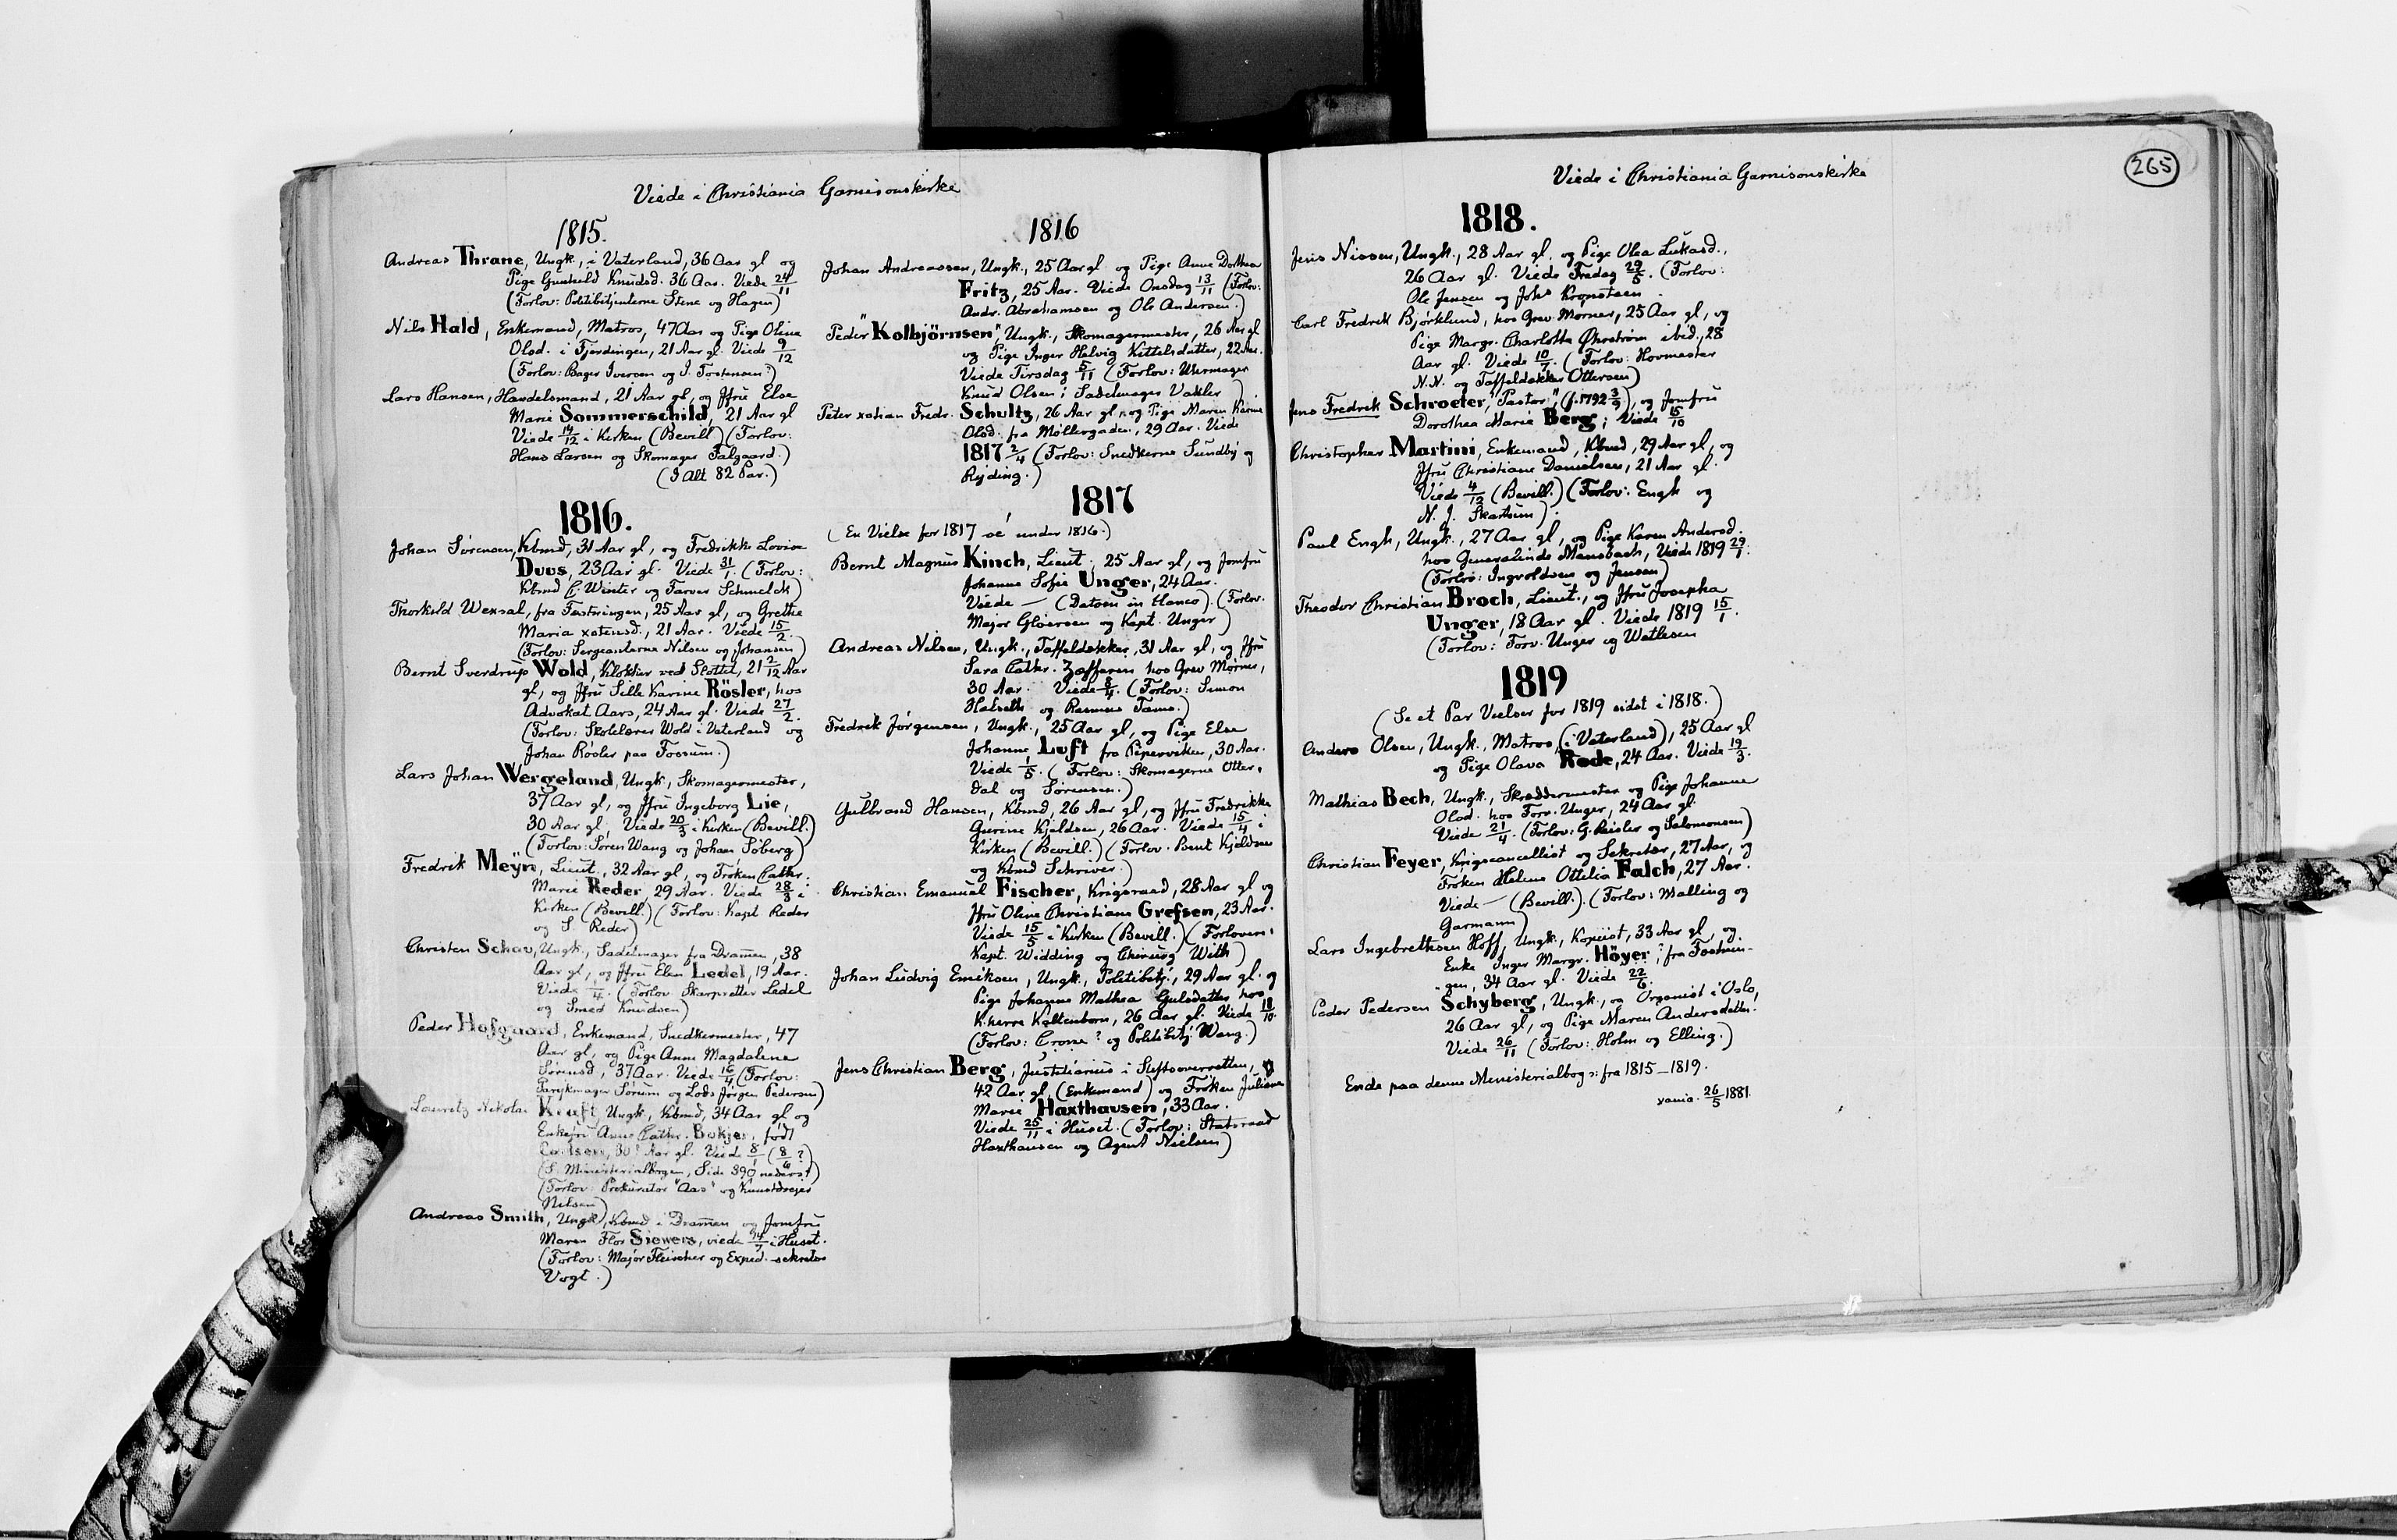 Viede i Christiania Garnisonskirke
1815.
Andreas Thrane, Ungk., i Vaterland, 36 Aar gl og
Pige Gunhild Knudsd. 36 Aar. Viede 24/11
(Forlov: Politibetjenterne Stene og Hagen)
Nils Hald, Enkemand, Matros, 47 Aar og Pige Oline
Olsd. i Fjerdingen, 21 Aar gl. Viede 9/12
(Forlov: Bager Iversen og J. Tostensen?)
Lars Hansen, Handelsmand, 21 Aar gl, og Jfru Else
Marie Sommerschild, 21 Aar gl
Viede 14/12 i Kirken (Bevill) (Forlov:
Hans Larsen og Skomager Falgaard.)
(I Alt 82 Par.)
1816.
Johan Sørensen, Kbmd, 31 Aar gl, og Fredrikke Lovise
Duus, 23 Aar gl. Viede 31/1. (Forlov:
Kbmd C. Winter og Farver Schmelck)
Thorkild Wexsal, fra Fæstningen, 25 Aar gl, og Grethe
Maria xstensd., 21 Aar. Viede 15/2.
(Forlov: Sergeanterne Nilsen og Johansen)
Bernt Sverdrup Wold, Klokker ved Slottet, 21 2/12 Aar
gl, og Jfru Sille Karine Rösler, hos
Advokat Aars, 24 Aar gl. Viede 27/2.
(Forlov: Skolelærer Wold i Vaterland og
Johan Røsler paa Fossum.)
Lars Johan Wergeland, Ungk, Skomagermester,
37 Aar gl, og Jfru Ingeborg Lie,
30 Aar gl, Viede 20/3 i Kirken (Bevill.)
(Forlov: Søren Wang og Johan Søberg)
Fredrik Meÿn, Lieut., 32 Aar gl, og Frøken Cathr.
Marie Reder, 29 Aar. Viede 28/3 i
Kirken (Bevill.) (Forlov: Kapt Reder
og S. Reder)
Christen Schav, Ungk., Sadelmager fra Dramen, 38
Aar gl, og Jfru Elen Ledel, 19 Aar.
Viede 1/4. (Forlov Skarpretter Ledel
og Smed Knudsen)
Peder Hofgaard, Enkemand, Snedkermester, 47
Aar gl, og Pige Anne Magdalene
Sørensd, 37 Aar. Viede 16/4 (Forlov:
Parykmager Sørum og Lods Jørgen Pedersen)
Lauritz Nikolai Kraft, Ungk, Kbmd, 34 Aar gl og
Enkefru Anne Cathr. Bokjer, født
30? Aar gl. Viede 8/1 (8/4?)
(S. Ministerialbogen, Side 390 nederst)
(Forlov: Prokurator "Aas" og Kunstdrejer
Nilsen)
Andreas Smith, Ungk, Kbmd i Dramen og Jomfru
Maren Flor Siewers, viede 24/7 i Huset.
(Forlov: Major Fleischer og Exped. sekretær
Vogt.)
1816
Johan Andreassen, Ungk., 25 Aar gl og Pige Anne Dorthea
Fritz, 25 Aar. Viede Onsdag 13/11 (Forlov:
Andr. Abrahamsen og Ole Andersen.)
Peder "Kolbjörnsen", Ungk., Skomagermester, 26 Aar gl
og Pige Inger Helvig Kittelsdatter, 22 Aar.
Viede Tirsdag 5/11 (Forlov: Uhrmager
Knud Olsen; Sadelmager Vakler)
Peter xstian Fredr. Schultz, 26 Aar gl, og Pige Maren Karine
Olsd. fra Møllergaden, 29 Aar. Viede
1817 2/4 (Forlov: Snedkerne Sundby og
Ryding.)
1817
(En Vielse for 1817 se under 1816.)
Bernt Magnus Kinch, Lieut., 25 Aar gl, og Jomfru
Johanne Sofie Unger, 24 Aar.
Viede — (Datoen in blanco). (Forlov.
Major Gløersen og Kapt. Unger)
Andreas Nilsen, Ungk., Taffeldækker, 31 Aar gl, og Jfru
Sara Cathr. Zofferen hos Grev Mørner,
30 Aar. Viede 8/4. (Forlov: Simon
Halseth og Rasmus Tams.)
Fredrik Jørgensen, Ungk., 25 Aar gl, og Pige Else
Johanne Luft fra Piperviken, 30 Aar.
Viede 1/5. (Forlov: Skomagerne Otter,
dal og Sørensen.)
Gulbrand Hansen, Kbmd, 26 Aar gl, og Jfru Fredrikke
Gurine Kjeldsen, 26 Aar. Viede 15/4 i
Kirken (Bevill.) (Forlov. Bent Kjeldsen
og Kbmd Schriver.)
Christian Emanuel Fischer, Krigsraad, 28 Aar gl og
Jfru Oline Christiane Grefsen, 23 Aar.
Viede 15/5 i Kirken (Bevill.) (Forlovere:
Kapt. Widding og Chirurg With)
Johan Ludvig Emiksen, Ungk., Politibetj., 29 Aar gl. og
Pige Johanne Mathea Gulsdatter hos
K.herre Kaltenborn, 26 Aar gl. Viede 18/10.
(Forlov: Crone? og Politibetj Wang.)
Jens Christian Berg, Justitiarius i Stiftsoverretten,
42 Aar gl, (Enkemand) og Frøken Juliane
Marie Haxthausen, 33 Aar.
Viede 25/11 i Huset. (Forlov: Statsraad
Haxthausen og Agent Nielsen)
265
Viede i Christiania Garnisonskirke
1818.
Jens Nissen, Ungk., 28 Aar gl. og Pige Olea Lukasd.,
26 Aar gl. Viede Fredag 29/5. (Forlov:
Ole Jensen og Johs Kronsteen
Carl Fredrik Bjørklund, hos Grev Mørner, 25 Aar gl, og
Pige Margr. Charlotta Øhrstrøm ibid., 28
Aar gl. Viede 10/7. (Forlov: Hovmester
N.N. og Taffeldækker Ottersen)
Jens Fredrik Schroeter, "Pastor" (f. 1792 3/9), og Jomfru
Dorothea Marie Berg; Viede 15/10
Christopher Martini, Enkemand, Kbmd, 29 Aar gl, og
Jfru Christiane Danielsen, 21 Aar gl.
Viede 4/12 (Bevill.) (Forlov: Engh og
N. J. Skartum).
Paul Engh, Ungk., 27 Aar gl, og Pige Karen Andersd.
hos Generalinde Mansbach, Viede 1819 29/1.
(Forlov: Ingvoldsen og Jensen)
Theodor Christian Broch, Lieut., og Jfru Josepha
Unger, 18 Aar gl. Viede 1819 15/1.
(Forlov: Forv. Unger og Watlesen
1819
(Se et Par Vielser for 1819 sidst i 1818.)
Anders Olsen, Ungk., Matros, (i Vaterland), 25 Aar gl
og Pige Olava Rode, 24 Aar. Viede 19/3.
Mathias Bech, Ungk., Skræddermester og Pige Johanne
Olsd. hos Forv. Unger, 24 Aar gl.
Viede 21/4. (Forlov: G. Reisler og Salomonsen)
Christian Feyer, Krigscancellist og Sekretær, 27 Aar, og
Frøken Helene Ottelia Falch, 27 Aar.
Viede — (Bevill.). (Forlov: Malling og
Garmann)
Lars Ingebrethsen Hoff, Ungk., Kopiist, 33 Aar gl, og
Enke Inger Margr. Höyer? fra Fæstnin-
gen, 34 Aar gl. Viede 22/6.
Peder Pedersen Schyberg, Ungk., og Organist i Oslo,
26 Aar gl, og Pige Maren Andersdatter.
Viede 26/11 (Forlov: Holm og Elling.)
Ende paa denne Ministerialbog ɔ: fra 1815–1819.
xania. 26/5 1881.